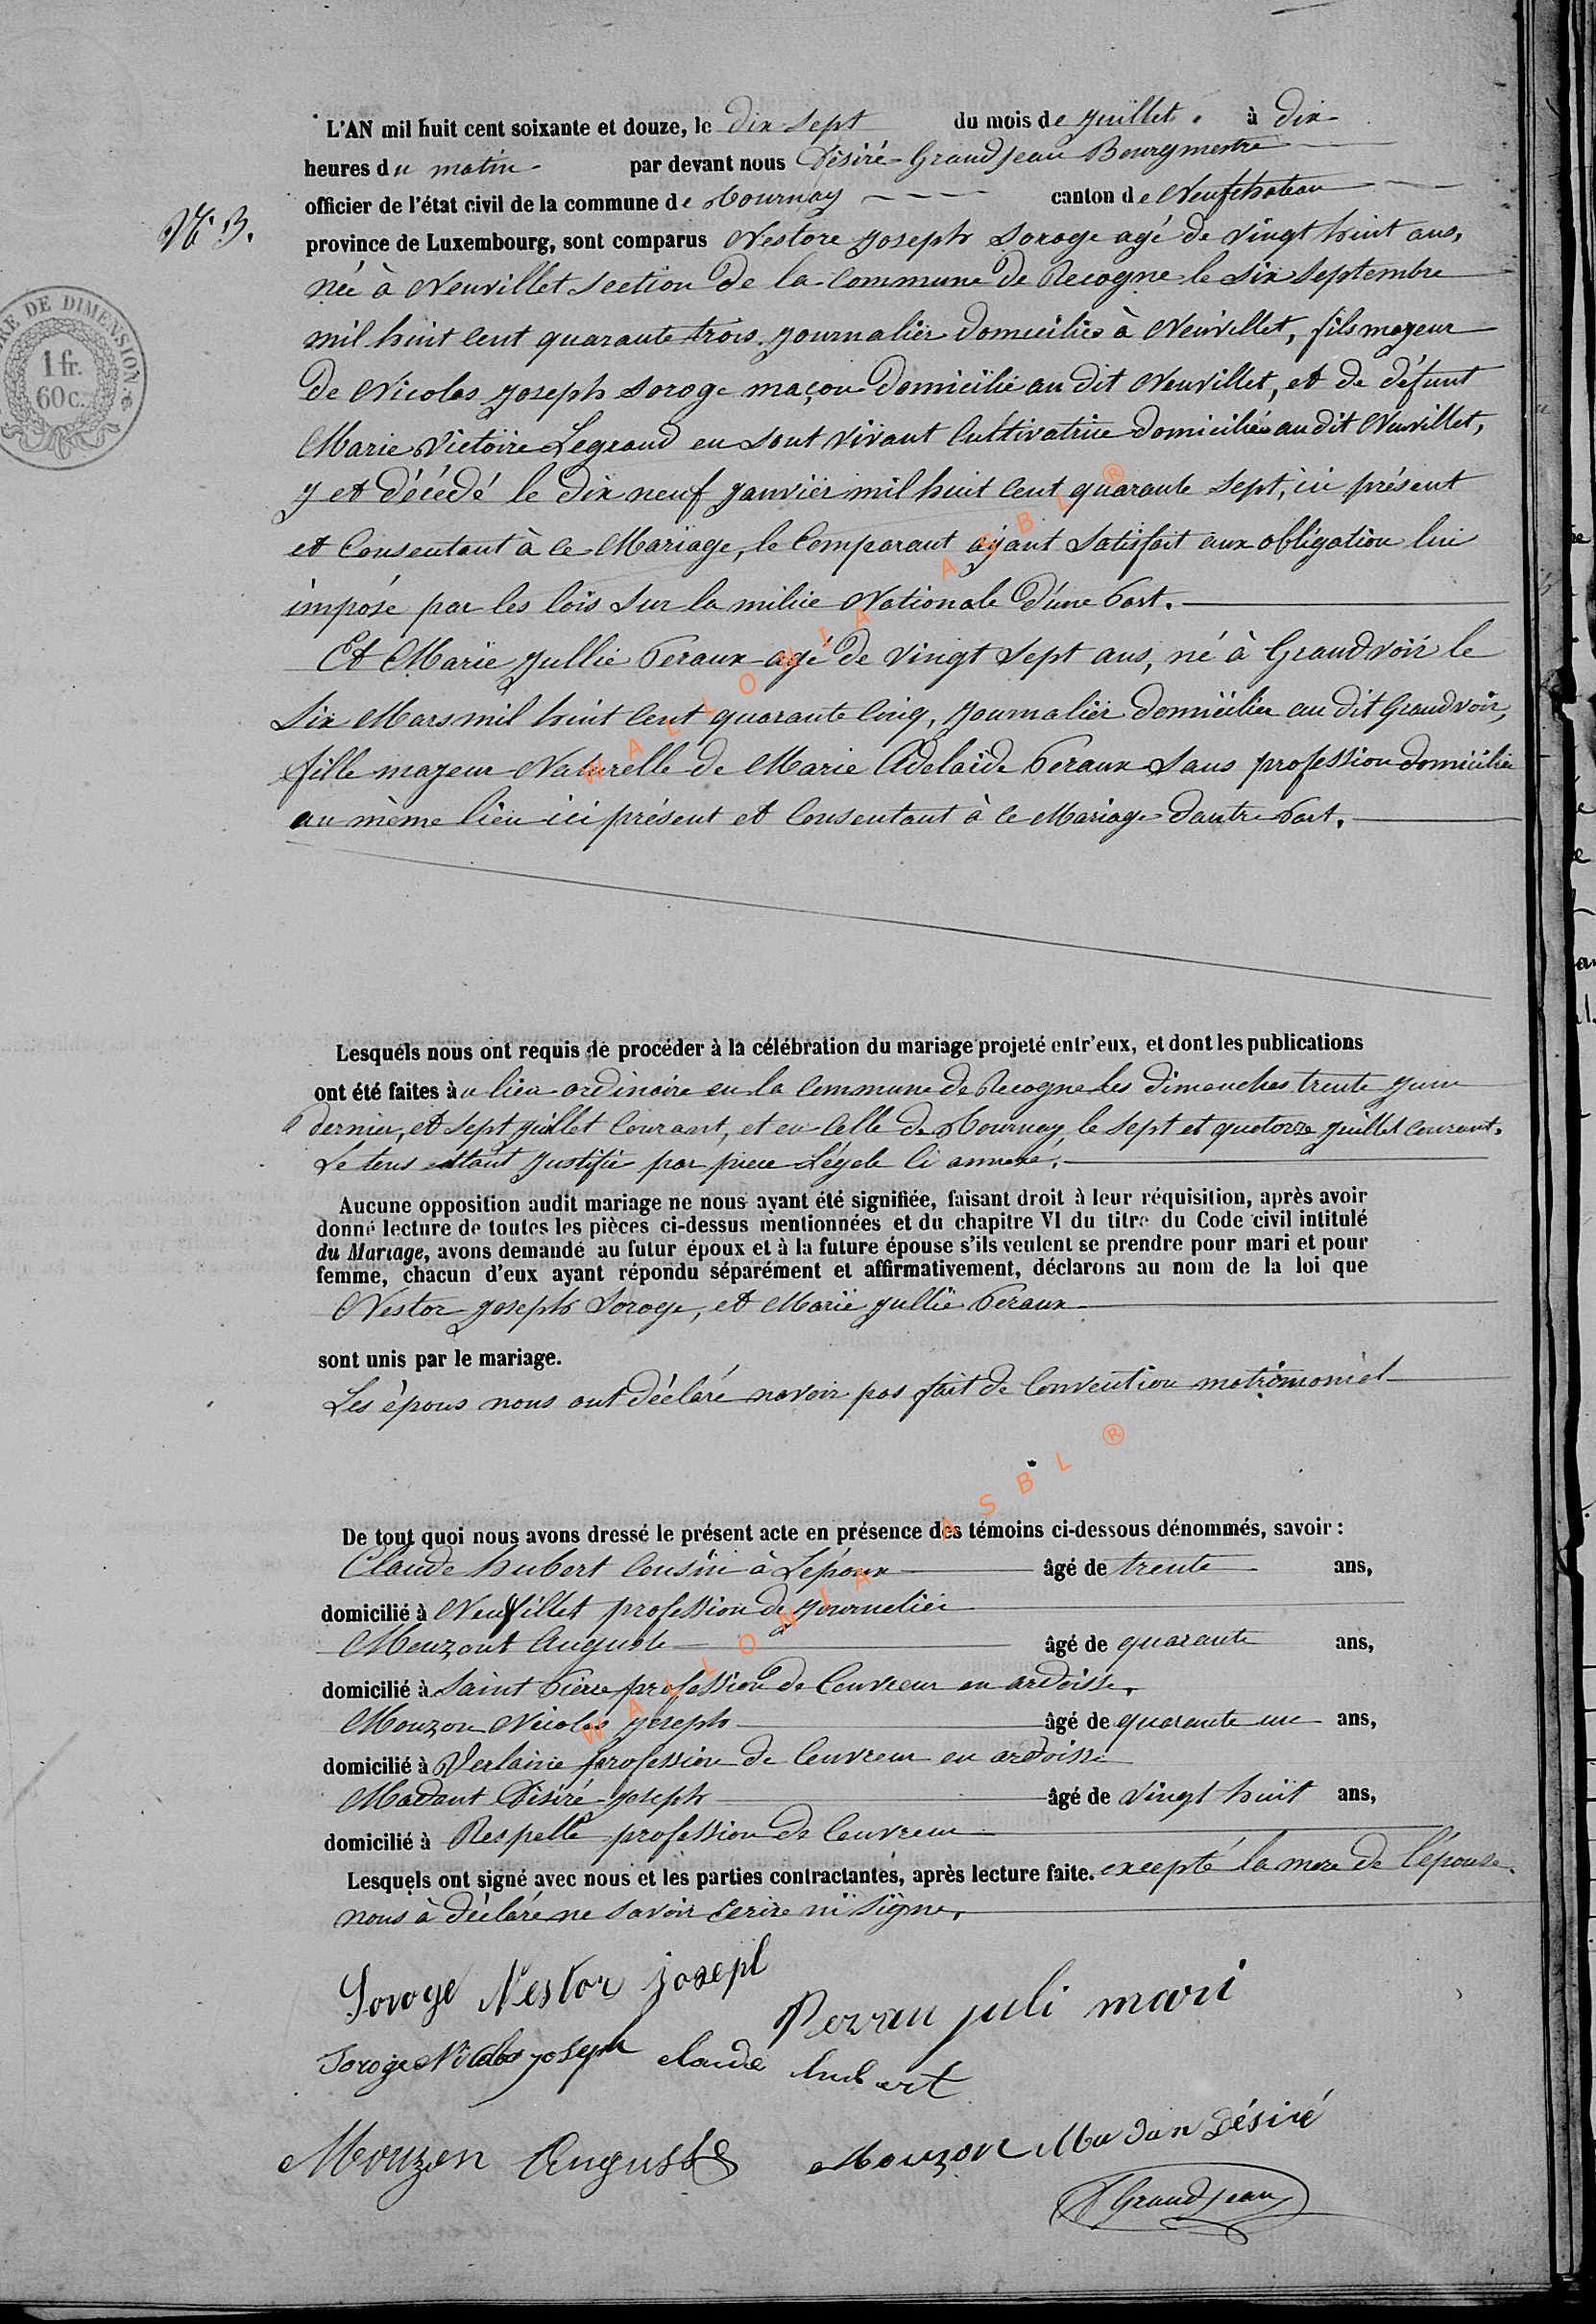 L'AN mil huit cent soixante et douze, le dix sept du mois de juillet. à dix
heures du matin par devant nous Désiré Grandjean Bourgmestre
officier de l'état civil de la commune de Tournay canton de Neufchateau
N° 3.
province de Luxembourg, sont comparus Nestore Joseph Soroge agé de vingt huit ans,
née à Neuvillet section de la commune de Recogne le six septembre
mil huit cent quarante trois. journalier domicilié à Neuvillet, fils mageur
de Nicolas Joseph Soroge maçon domicilié au dit Neuvillet, et de défunt
Marie Victoire Legrand en sont vivant cultivatrice domiciliée au dit Neuvillet,
y et décédé le dix neuf janvier mil huit cent quarante sept, ici présent
et consentant à ce Mariage, le comparant ayant satisfait aux obligation lui
imposé par les lois sur la milice Nationale d'une part.
Et Marie Jullie Peraux agé de vingt sept ans, né à Grandvoir le
six Mars mil huit cent quarante cinq, journalier domicilier au dit Grandvoir,
fille mageur Naturelle de Marie Adelaïde Peraux sans profession domicilié
au même lieu ici présent et consentant à ce Mariage dautre part.
Lesquels nous ont requis de procéder à la célébration du mariage projeté entr'eux, et dont les publications
ont été faites au lieu ordinaire en la commune de Recogne les dimanches trente juin
dernier, et sept juillet courant, et en celle de Tournay, le sept et quatorze juillet courant.
Le tous étant justifié par piece Légale ci annexe.
Aucune opposition audit mariage ne nous ayant été signifiée, faisant droit à leur réquisition, après avoir
donné lecture de toutes les pièces ci-dessus mentionnées et du chapitre VI du titre du Code civil intitulé
du Mariage, avons demandé au futur époux et à la future épouse s'ils veulent se prendre pour mari et pour
femme, chacun d'eux ayant répondu séparément et affirmativement, déclarons au nom de la loi que
Nestor Joseph Soroge, et Marie Jullie Peraux
sont unis par le mariage.
Les épous nous ont déclaré navoir pas fait de convention matrimoniel
De tout quoi nous avons dressé le présent acte en présence des témoins ci-dessous dénommés, savoir :
Claude hubert cousin à Lépoux âgé de trente ans,
domicilié à Neuvillet profession de journelier
Mouzont Auguste âgé de quarante ans,
domicilié à Saint Pierre profession de Couvreur en ardoisse.
Mouzon Nicolas Joseph âgé de quarante un ans,
domicilié à Verlaine profession de couvreur en ardoisse
Madant Désiré Joseph âgé de vingt huit ans,
domicilié à Respelle profession de couvreur
Lesquels ont signé avec nous et les parties contractantes, après lecture faite. excepté la mere de l'épouse.
nous à déclaré ne savoir écrire ni signe.
Soroge Nestor josepl
Perrau juli mari
Soroge Nicolas joseph claude hubert
Mouzon Auguste Mouzon Madan Désiré
D Grandjean
RE DE DIMENSION
1 fr.
60 c.
WALLONIA ASBL ®
WALLONIA ASBL ®